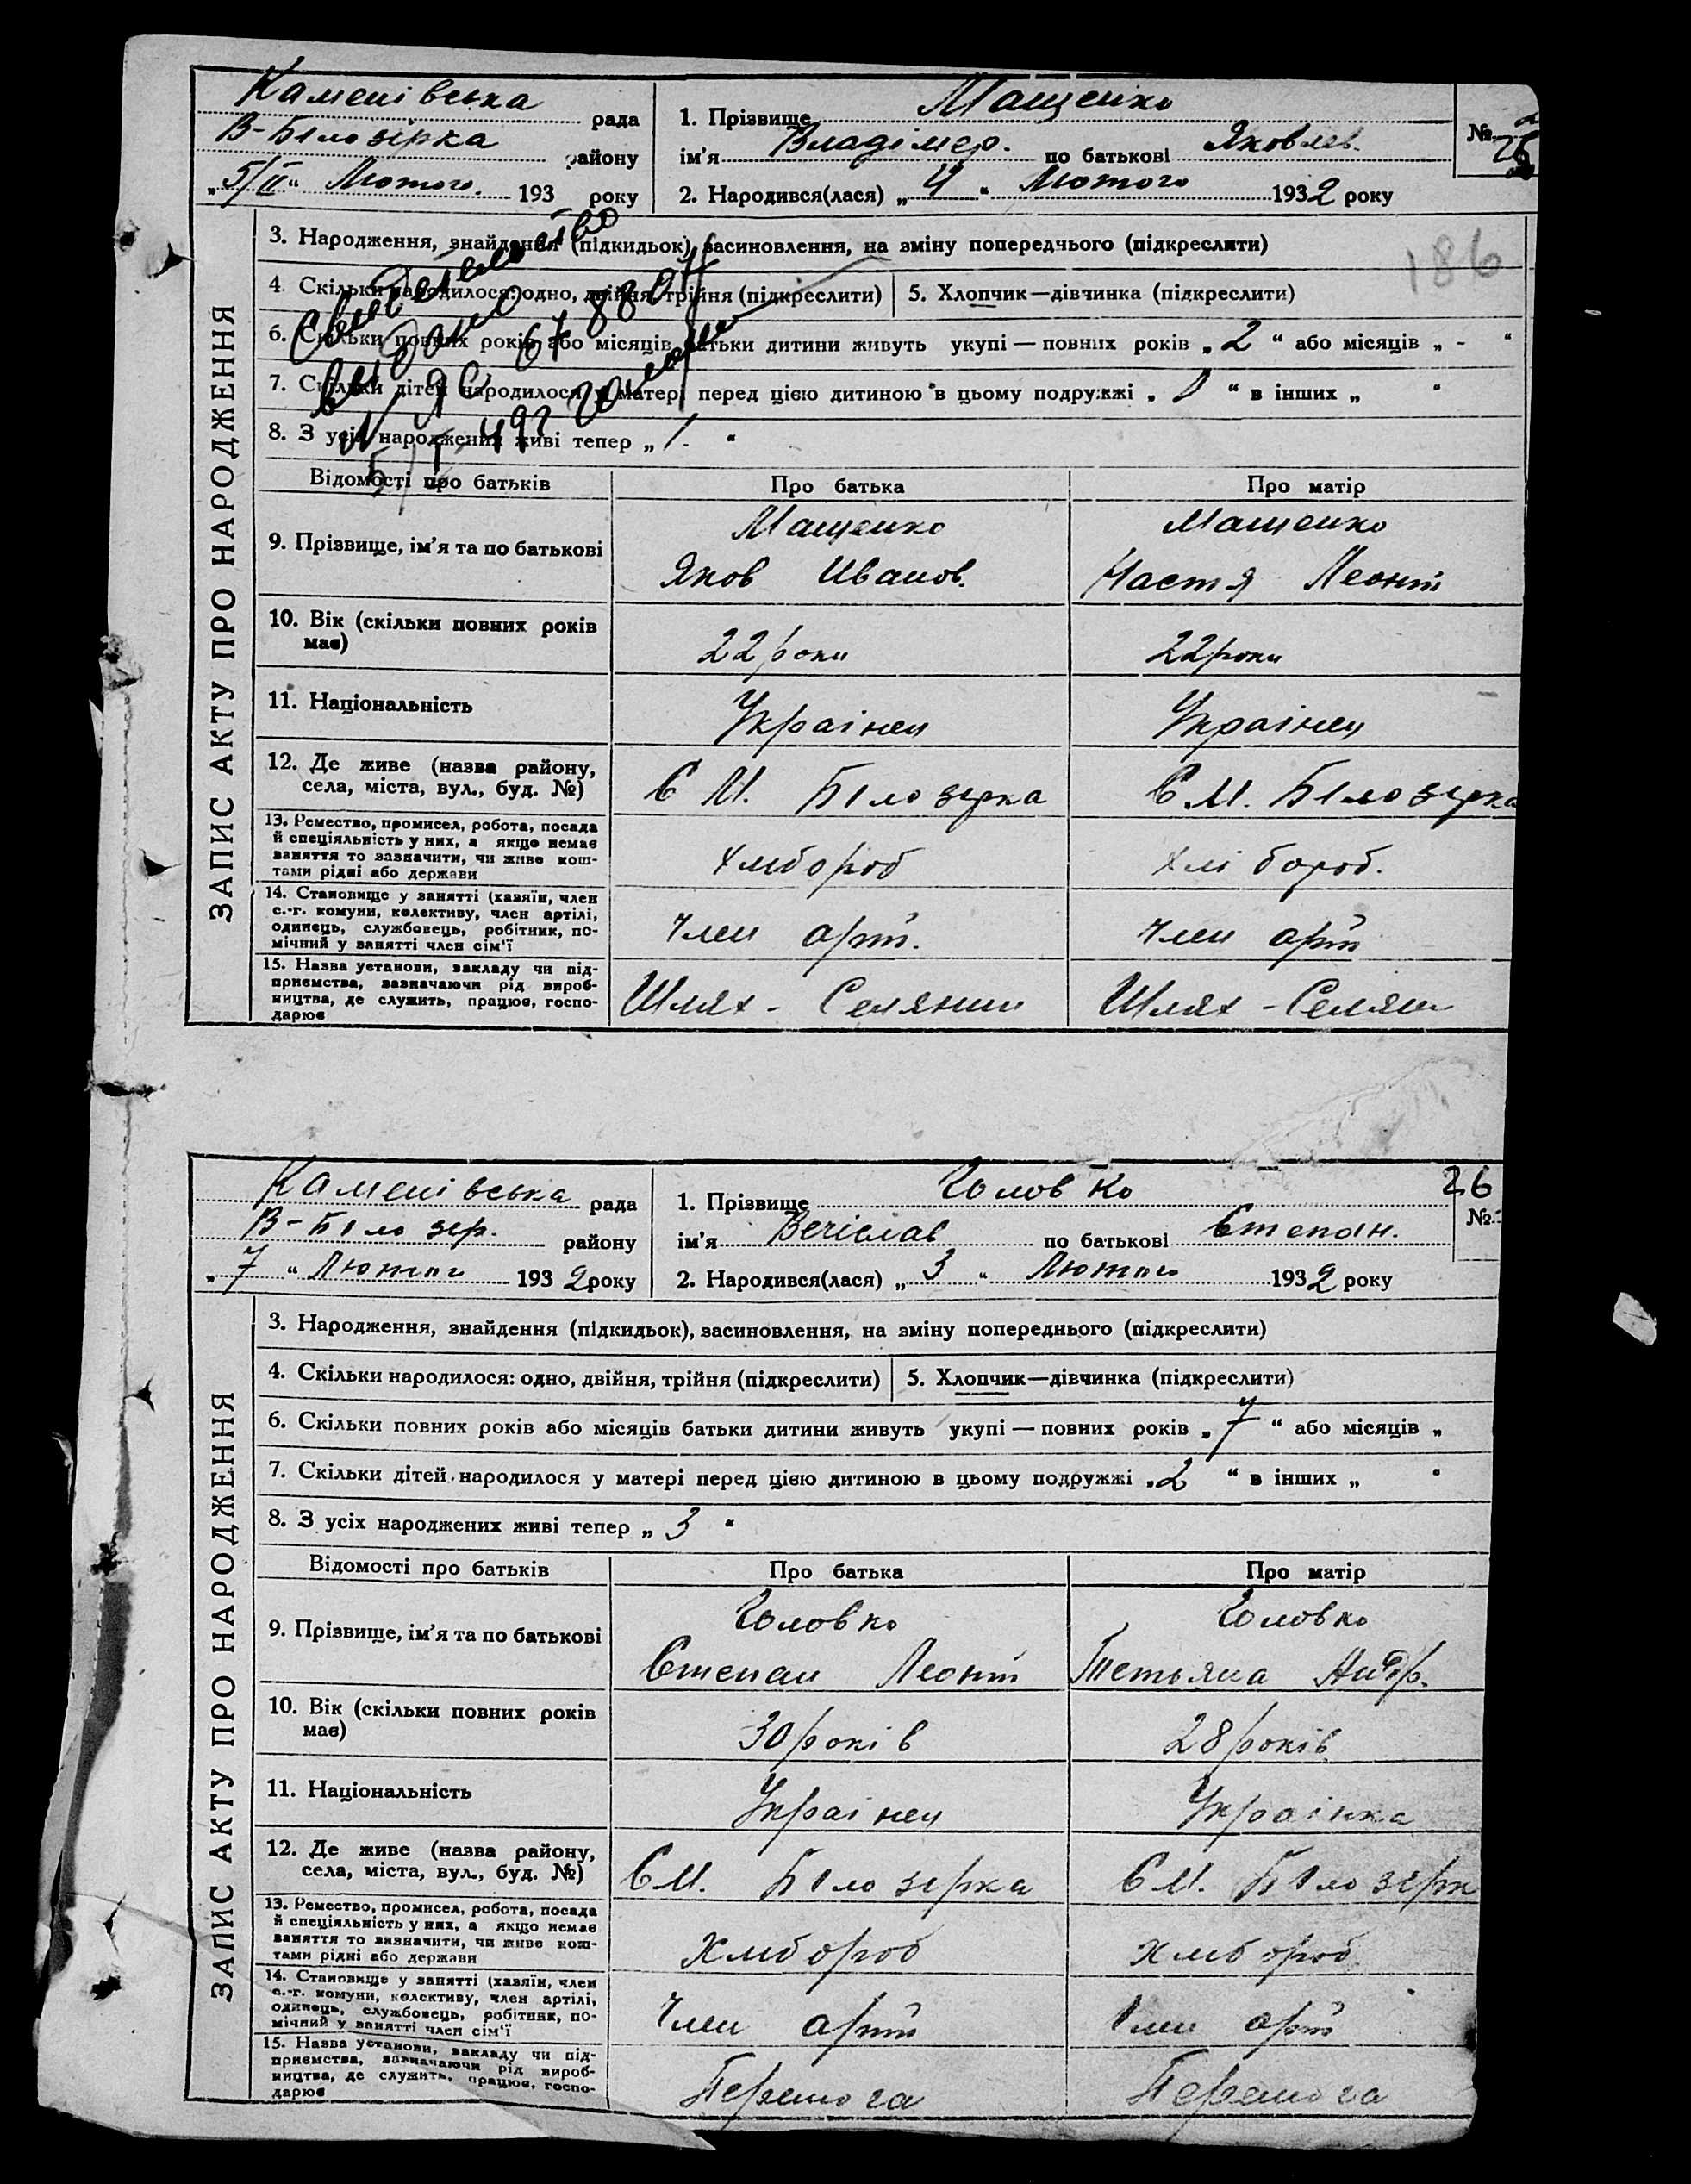 Каменівська рада
В-Білозірка району
„5/II“ Лютого. 193 року
1. Прізвище Мащенко
ім'я Владімер. по батькові Яковлев.
2. Народився(лася) „4“ Лютого 1932 року
№ 25
186
ЗАПИС АКТУ ПРО НАРОДЖЕННЯ
3. Народження, знайдення (підкидьок), засиновлення, на зміну попереднього (підкреслити)
4. Скільки народилося: одно, двійня, трійня (підкреслити)
5. Хлопчик—дівчинка (підкреслити)
6. Скільки повних років або місяців батьки дитини живуть укупі — повних років „2“ або місяців „-“
7. Скільки дітей народилося у матері перед цією дитиною в цьому подружжі „ “ в інших „ “
8. З усіх народжених живі тепер „1.“
Свидетельство
выдано
Відомості про батьків
Про батька
Про матір
9. Прізвище, ім'я та по батькові
Мащенко
Яков Иванов.
Мащенко
Настя Леонт
10. Вік (скільки повних років має)
22 роки
22 роки
11. Національність
Українец
Українец
12. Де живе (назва району,
села, міста, вул., буд. №)
С М. Білозірка
С М. Білозірка
13. Ремество, промисел, робота, посада
й спеціяльність у них, а якщо немає
заняття то зазначити, чи живе кош-
тами рідні або держави
Хлібороб
Хлібороб.
14. Становище у занятті (хазяїн, член
с.-г. комуни, колективу, член артілі,
одинець, службовець, робітник, по-
мічний у занятті член сім'ї
Член арт.
Член арт
15. Назва установи, закладу чи під-
приємства, зазначаючи рід вироб-
ництва, де служить, працює, госпо-
дарює
Шлях - Селянин
Шлях - Селян
Каменівська рада
В-Білозір. району
„7“ Лютого 1932 року
1. Прізвище Головко
ім'я Вечіслав по батькові Степан.
2. Народився(лася) „3“ Лютого 1932 року
26
№
ЗАПИС АКТУ ПРО НАРОДЖЕННЯ
3. Народження, знайдення (підкидьок), засиновлення, на зміну попереднього (підкреслити)
4. Скільки народилося: одно, двійня, трійня (підкреслити)
5. Хлопчик—дівчинка (підкреслити)
6. Скільки повних років або місяців батьки дитини живуть укупі — повних років „7“ або місяців „
7. Скільки дітей народилося у матері перед цією дитиною в цьому подружжі „2“ в інших „ “
8. З усіх народжених живі тепер „3“
Відомості про батьків
Про батька
Про матір
9. Прізвище, ім'я та по батькові
Головко
Степан Леонт
Головко
Тетьяна Андр.
10. Вік (скільки повних років
має)
30 років
28 років
11. Національність
Українец
Українка
12. Де живе (назва району,
села, міста, вул., буд. №)
С М. Білозірка
С М. Білозірк
13. Ремество, промисел, робота, посада
й спеціяльність у них, а якщо немає
заняття то зазначити, чи живе кош-
тами рідні або держави
Хлібороб
Хлібороб
14. Становище у занятті (хазяїн, член
с.-г. комуни, колективу, член артілі,
одинець, службовець, робітник, по-
мічний у занятті член сім'ї
Член арт
Член арт
15. Назва установи, закладу чи під-
приємства, зазначаючи рід вироб-
ництва, де служить, працює, госпо-
дарює
Перемога
Перемога